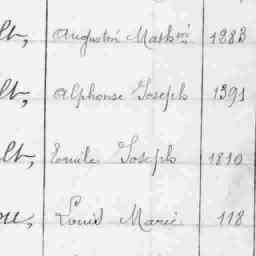 lt, Augustin Math.in 1283
lt, Alphonse Joseph 1391
lt, Emile Joseph 1810
ou, Louis Marie 118